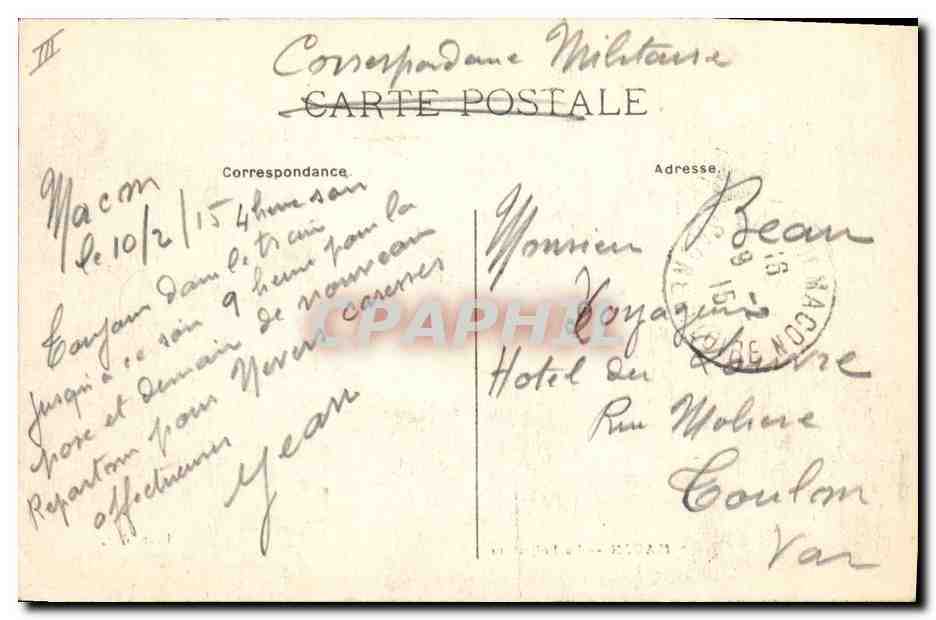 III
Correspondance Militaire
CARTE POSTALE
Correspondance
Adresse.
Macon
le 10/2/15 4 heure soir
Toujour dans le train
jusqu'a ce soir 9 heure pour la
pose et demain de nouveau
Repartons pour Nevers caresses
affectueuses
Jean
Monsieur Beau
Voyageurs
Hotel du Louvre
Rue Moliere
Toulon
Var
MACON
15
CPAPHIL